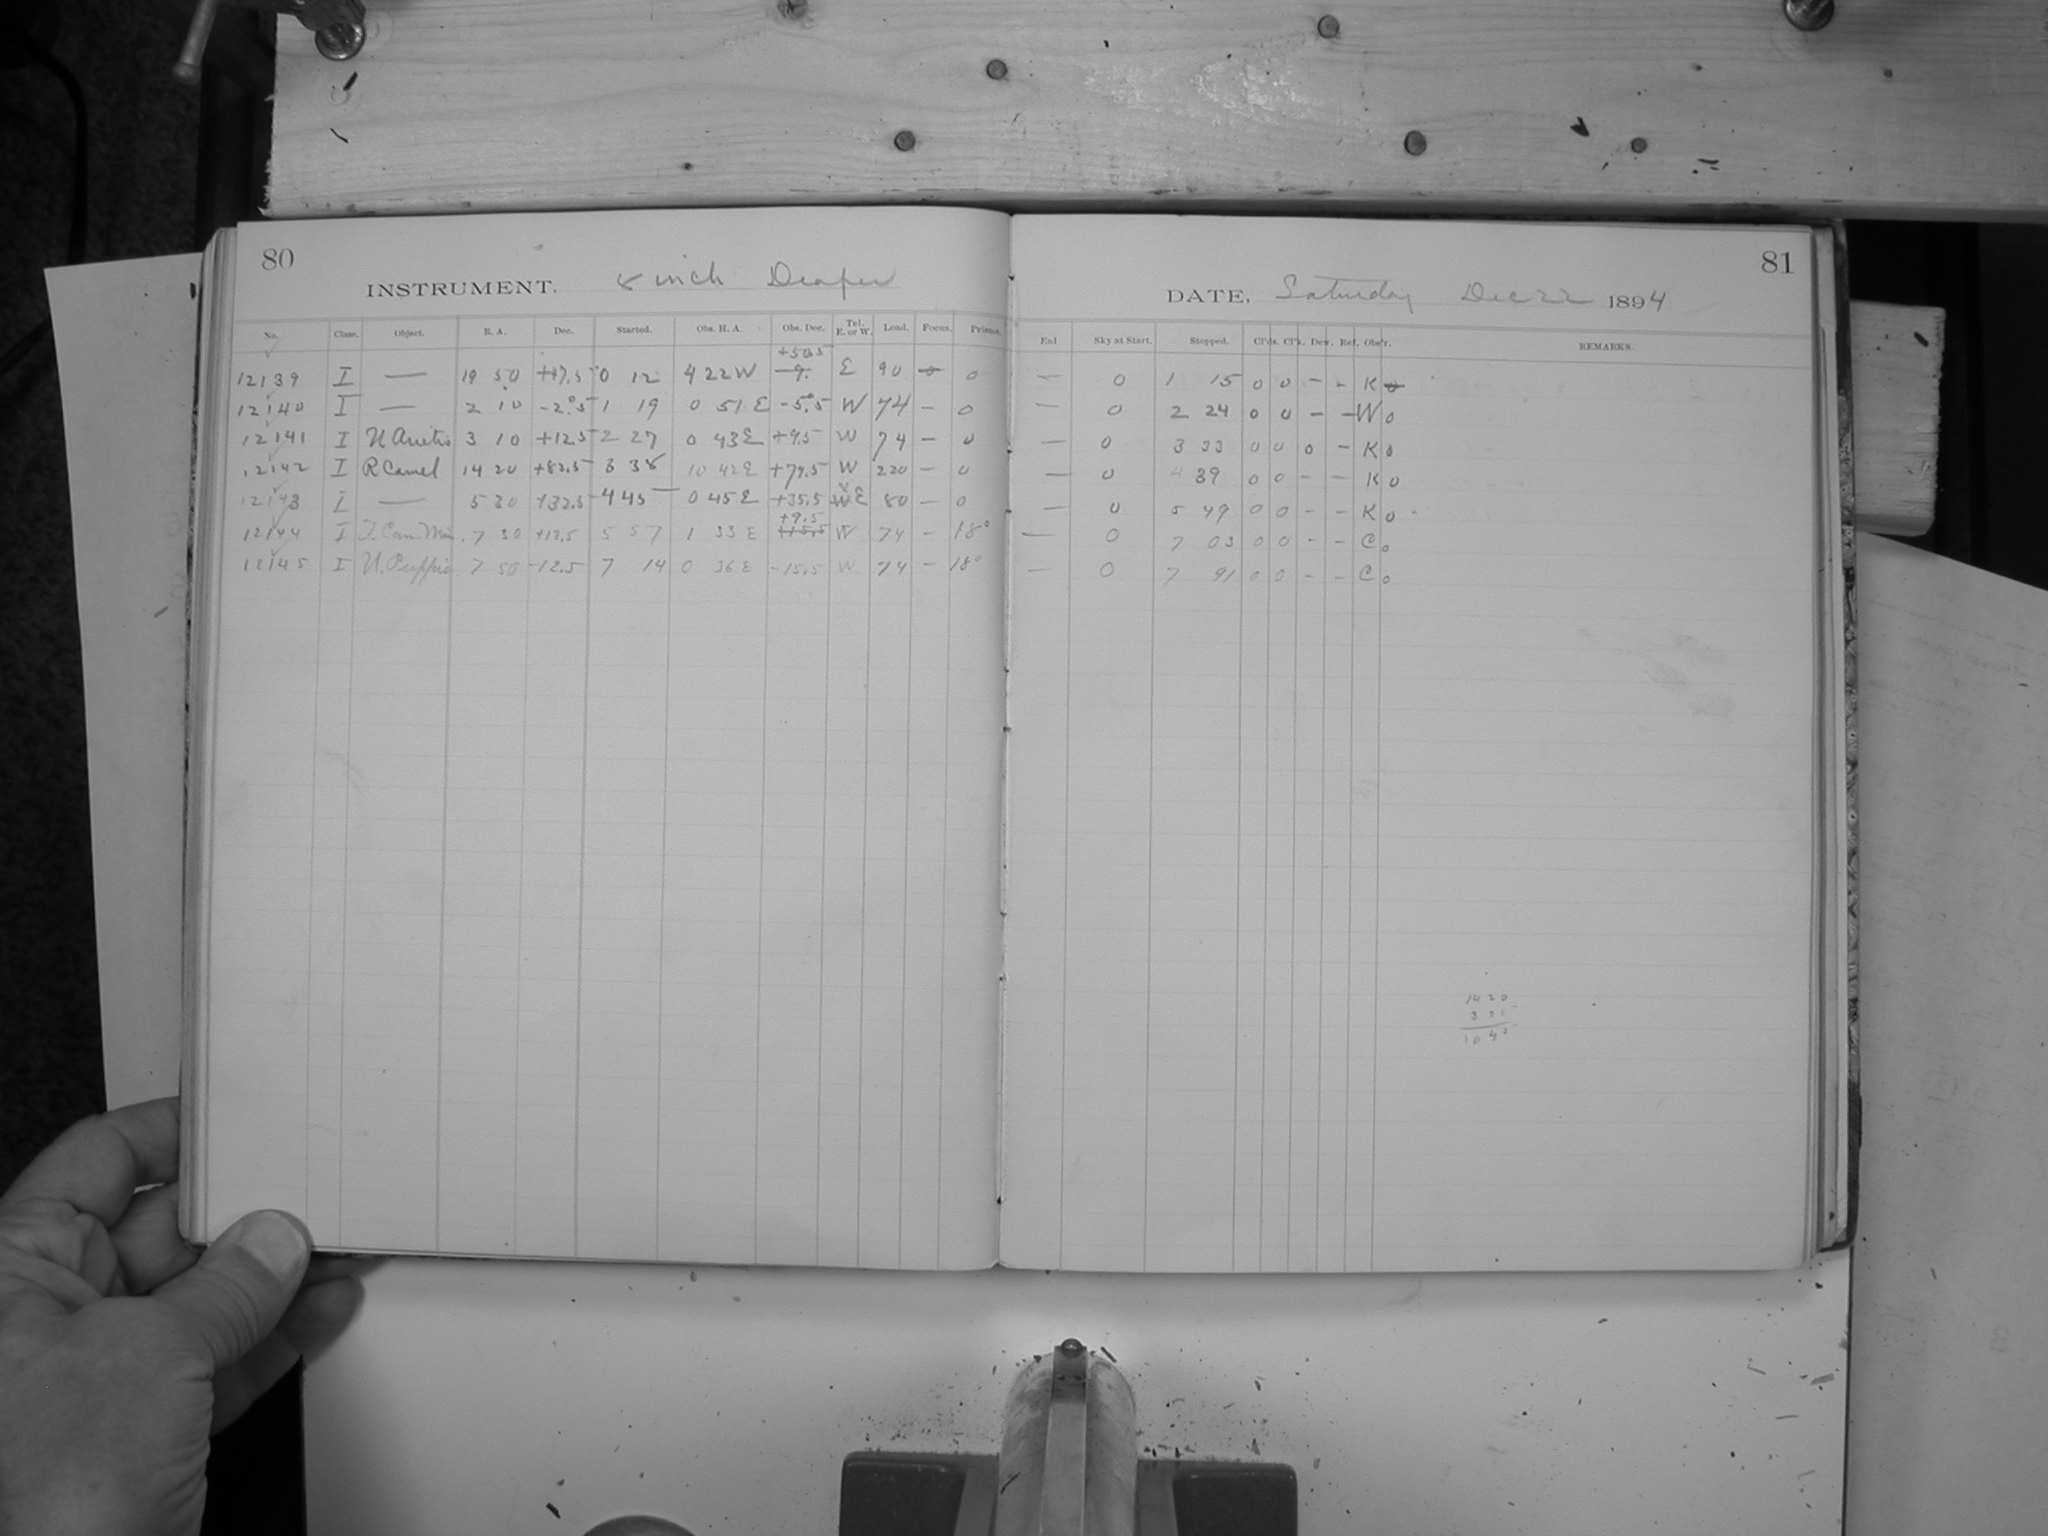 80
INSTRUMENT. 8 inch Draper
No. Class. Object. R. A. Dec. Started. Obs. H. A. Obs. Dec. Tel. E. or W. Load. Focus. Prisms.
+50.5
12139 I — 19 50 +47.5 0 12 4 22 W -9. E 90 0 0
12140 I — 2 10 -2.5 1 19 0 51 E -5.5 W 74 — 0
12141 I U Arietis 3 10 +12.5 2 27 0 43 E +9.5 W 74 — 0
12142 I R Camel 14 20 +82.5 3 38 10 42 E +79.5 W 220 — 0
12143 I — 5 30 +32.5 4 45 0 45 E +35.5 W E 80 — 0
+9.5
12144 I T. Can. Min. 7 30 +12.5 5 57 1 33 E +15.5 W 74 — 18°
12145 I U. Puppis 7 50 -12.5 7 14 0 36 E -15.5 W 74 — 18°
81
DATE, Saturday Dec 22 1894
Enl Sky at Start. Stopped. Cl'ds. Cl'k. Dew. Ref. Obs'r. REMARKS.
— 0 1 15 0 0 - - K 0
— 0 2 24 0 0 - - W 0
— 0 3 33 0 0 0 - K 0
— 0 4 39 0 0 - - K 0
— 0 5 49 0 0 - - K 0
— 0 7 03 0 0 - - C 0
— 0 7 91 0 0 - - C 0
14 20
3
10 4